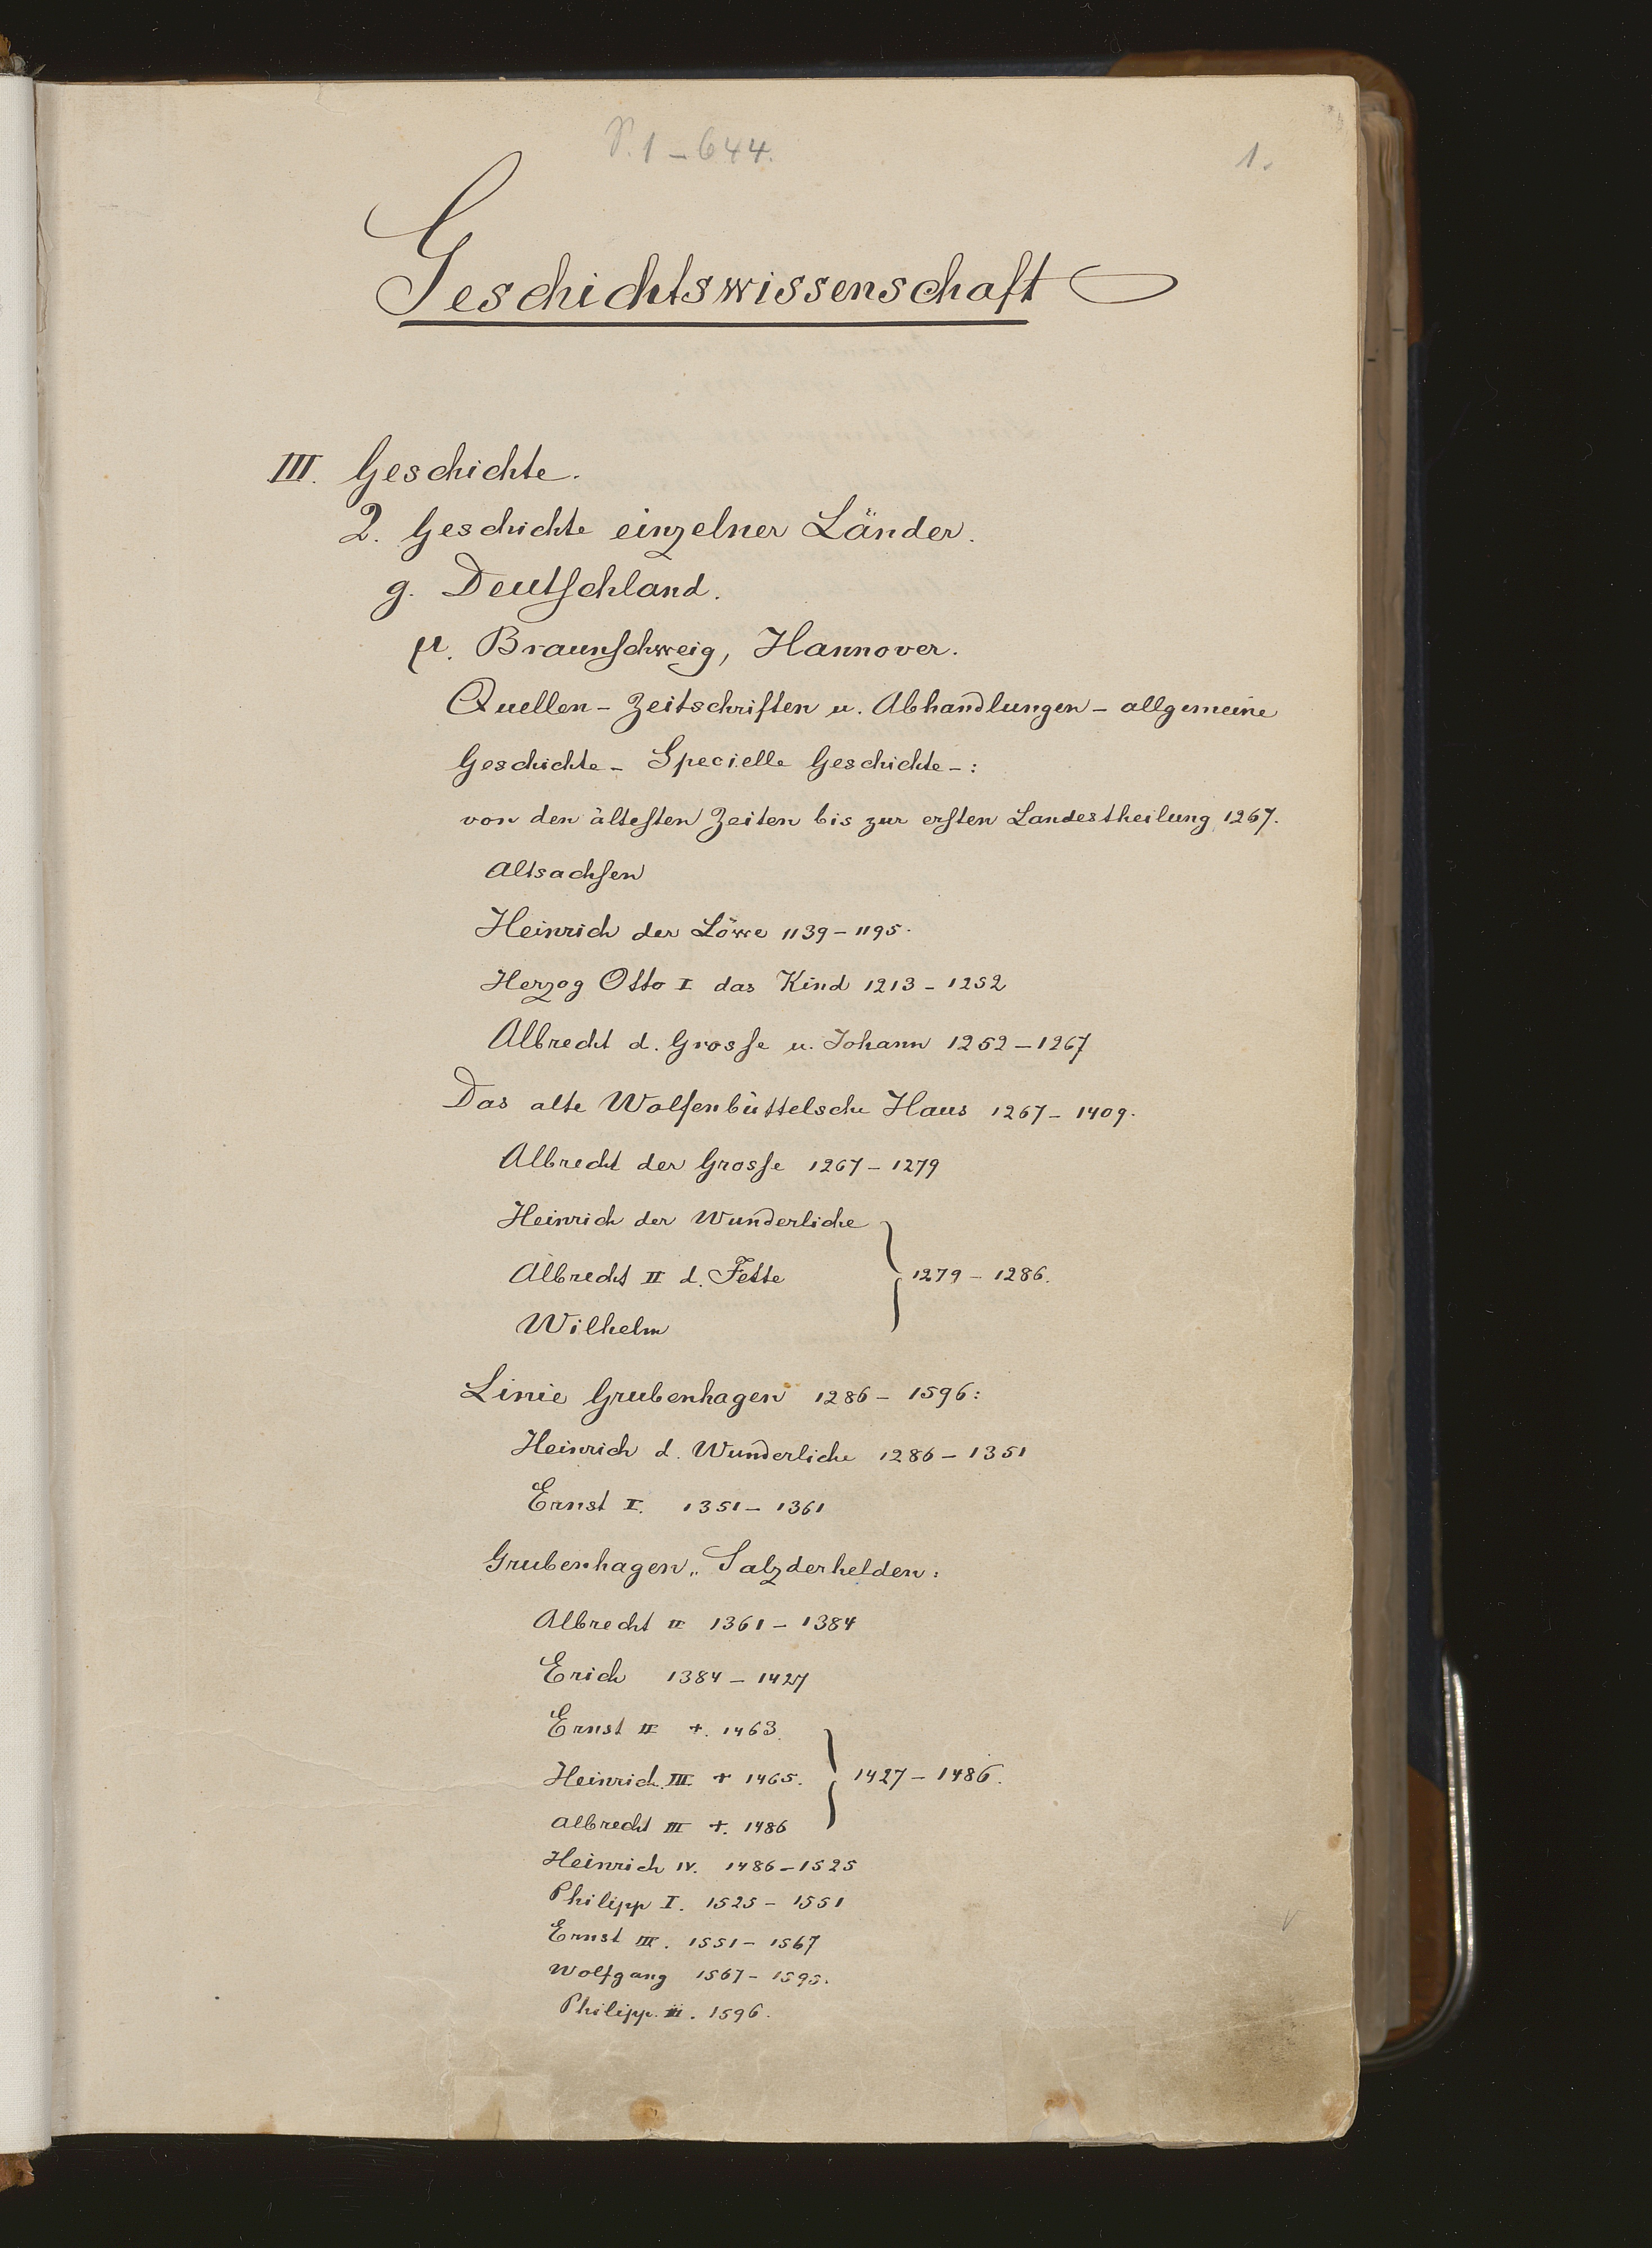 P. 1 – 644.
1.
Geschichtswissenschaft
III. Geschichte.
2. Geschichte einzelner Länder.
g. Deutschland.
μ. Braunschweig, Hannover.
Quellen – Zeitschriften u. Abhandlungen – allgemeine
Geschichte – Specielle Geschichte –:
von den ältesten Zeiten bis zur ersten Landestheilung 1267.
Altsachsen
Heinrich der Löwe 1139 – 1195.
Herzog Otto I das Kind 1213 – 1252
Albrecht d. Grosse u. Johann 1252 – 1267
Das alte Wolfenbüttelsche Haus 1267 – 1409.
Albrecht der Grosse 1267 – 1279
Heinrich der Wunderliche
Albrecht II d. Fette } 1279 – 1286.
Wilhelm
Linie Grubenhagen 1286 – 1596:
Heinrich d. Wunderliche 1286 – 1351
Ernst I. 1351 – 1361
Grubenhagen „ Salzderhelden:
Albrecht II 1361 – 1384
Erich 1384 – 1427
Ernst II +. 1463.
Heinrich III + 1465. } 1427 – 1486.
Albrecht III +. 1486
Heinrich IV. 1486 – 1525
Philipp I. 1525 – 1551
Ernst III. 1551 – 1567
Wolfgang 1567 – 1595.
Philipp. II. 1596.